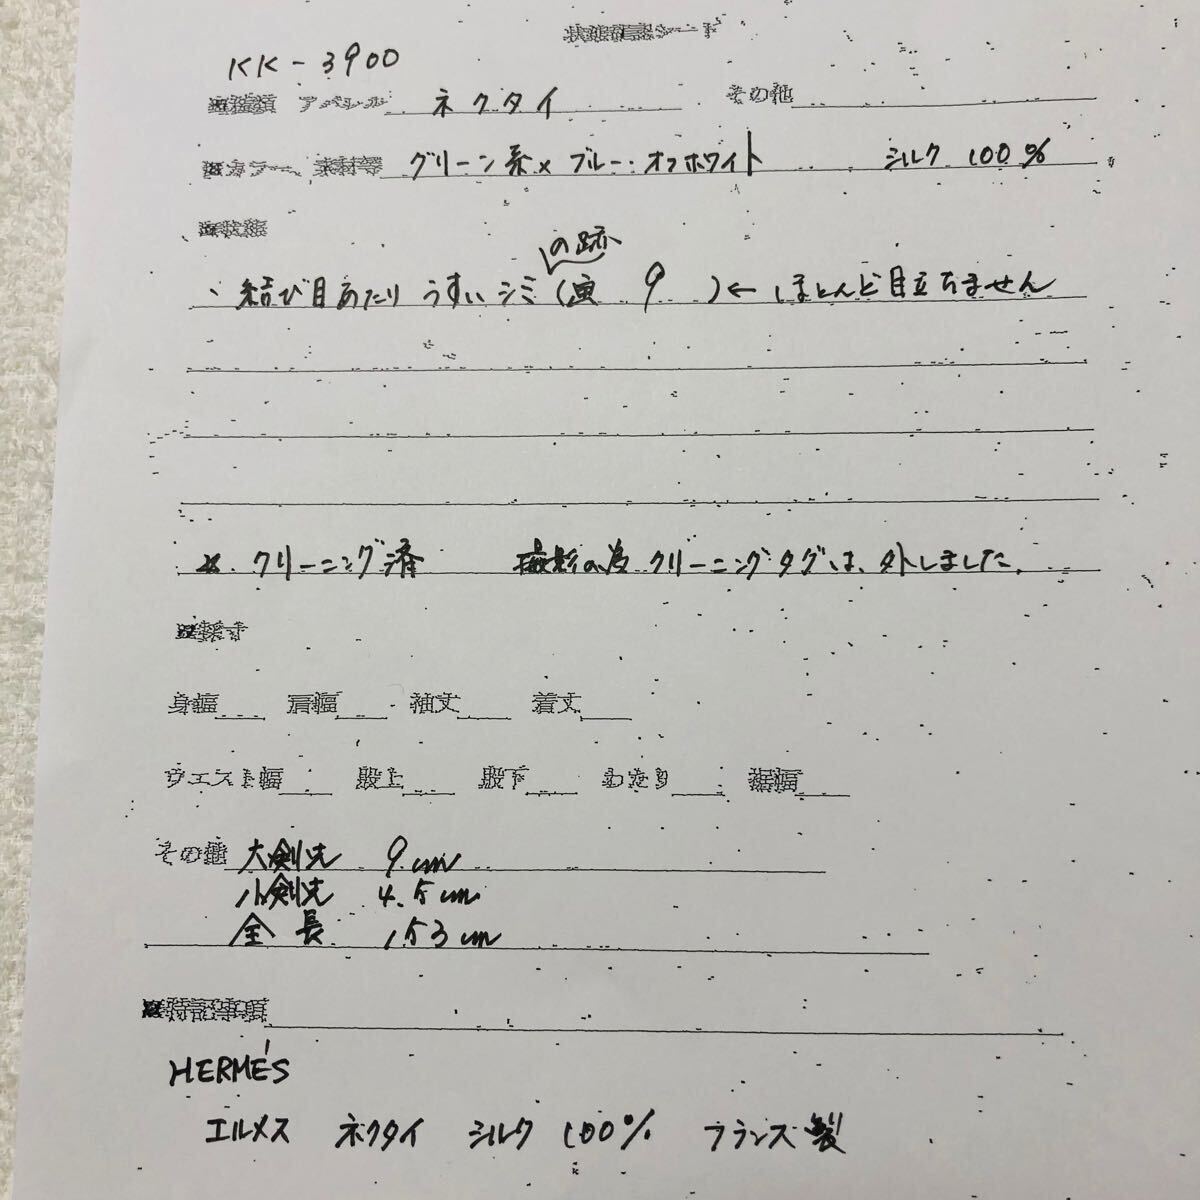 状態確認シート
KK-3900
アパレル ネクタイ その他
カラー 素材等 グリーン系×ブルー・オフホワイト シルク 100%
状態
の跡
、結び目あたり うすいシミ( 9 )← ほとんど目立ちません
※ クリーニング済 撮影の為 クリーニングタグは、外しました。
採寸
身幅 肩幅 袖丈 着丈
ウエスト幅 股上 股下 わたり 裾幅
その他 大剣先 9cm
小剣先 4.5cm
全長 153cm
特記事項
HERMÉS
エルメス ネクタイ シルク 100% フランス製